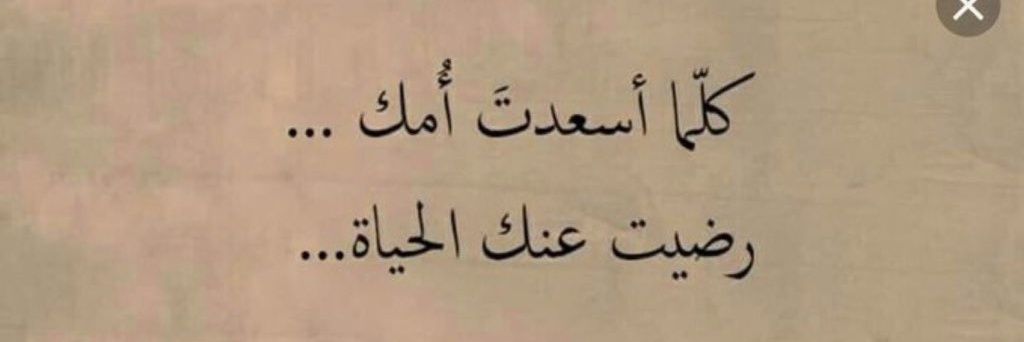 كلّما أسعدتَ أُمك ...
رضيت عنك الحياة...